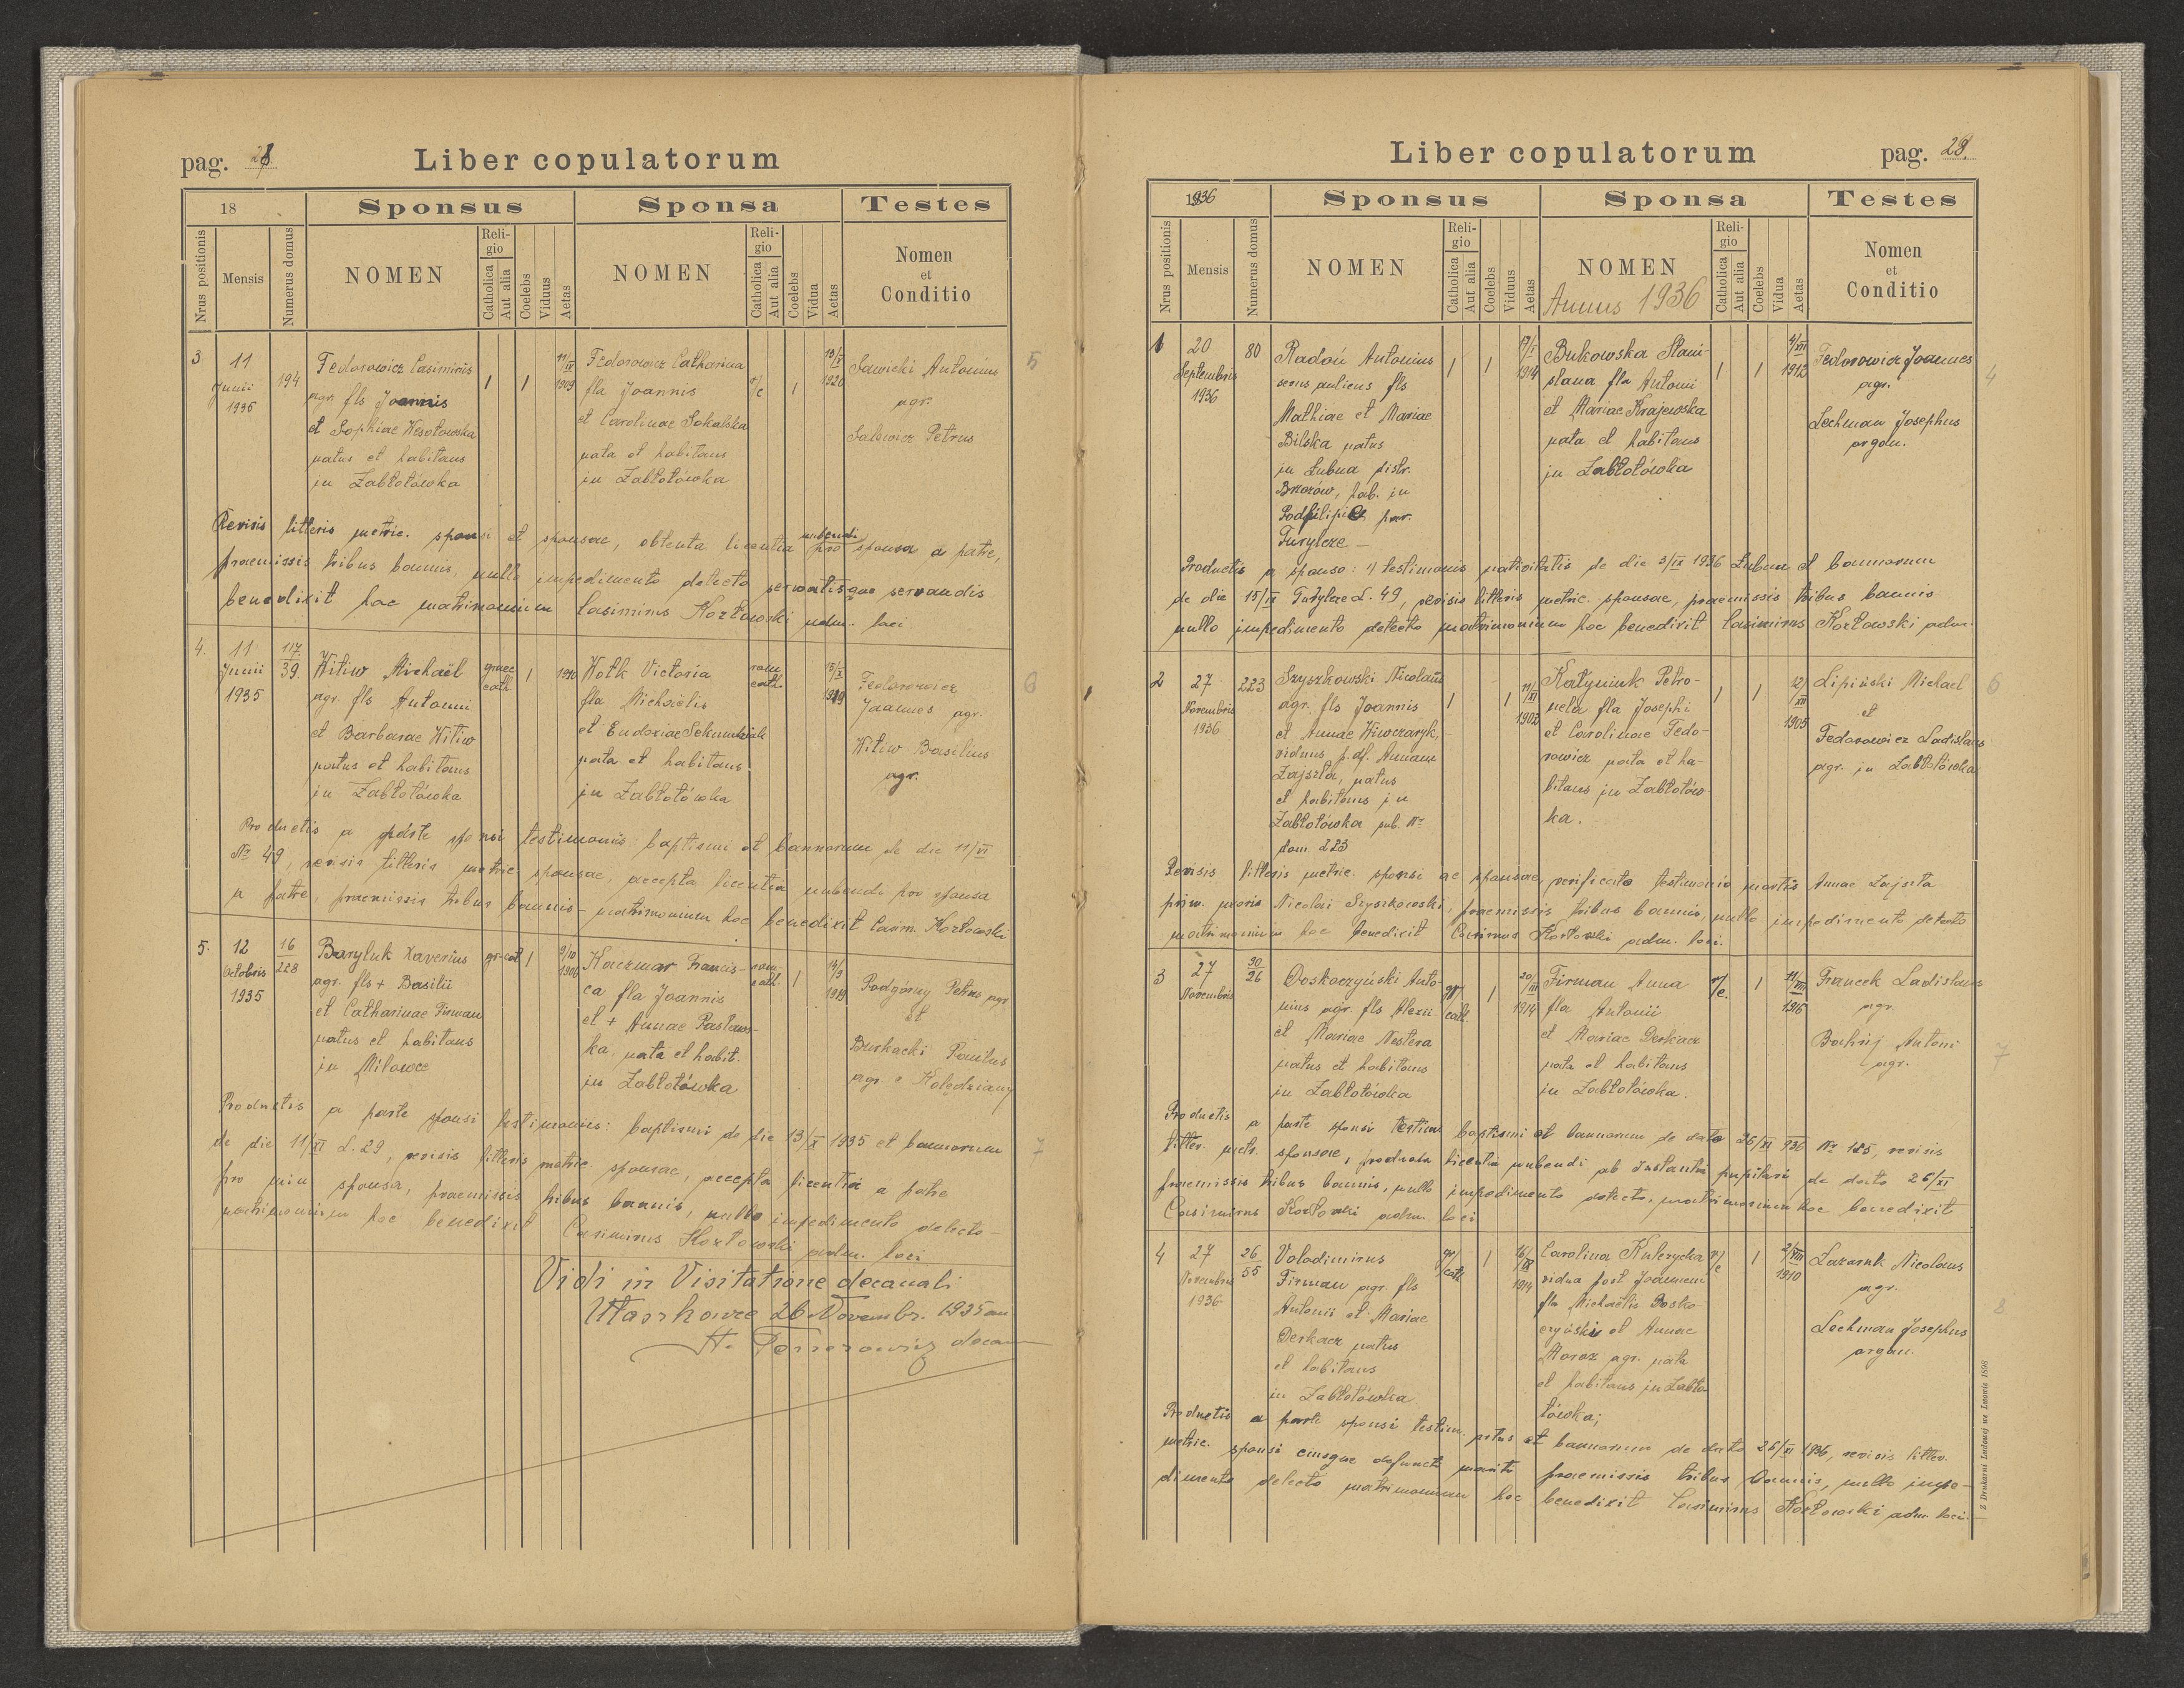 pag. 28
Liber copulatorum
18
Sponsus
Sponsa
Testes
Nrus positionis
Mensis
Numerus domus
NOMEN
Religio
Catholica
Aut alia
Coelebs
Viduus
Aetas
NOMEN
Religio
Catholica
Aut alia
Coelebs
Vidua
Aetas
Nomen
et
Conditio
3
11
Junii
1935
194
Fedorowicz Casimirus
agr. fls Joannis
et Sophiae Wesołowska
natus et habitans
in Zabłotówka
1
1
11/IX
1909
Fedorowicz Catharina
fla Joannis
et Carolinae Sokalska
nata et habitans
in Zabłotówka
r/c
1
1920
Sawicki Antonius
agr.
Salewicz Petrus
5
Revisis litteris metric. sponsi et sponsae, obtenta licentia nubendi pro sponsa a patre,
praemissis tribus bannis, nullo impedimento detecto servatisque servandis
benedixit hoc matrimonium Casimirus Kozłowski adm. loci
4.
11
Junii
1935
117
39.
Witiw Michaël
agr. fls Antonii
et Barbarae Witiw
natus et habitans
in Zabłotówka
graec
cath
1
1910
Wołk Victoria
fla Michaëlis
et Eudoxiae
nata et habitans
in Zabłotówka
rom
cath.
Fedorowicz
Joannes agr.
Witiw Basilius
agr.
6
Productis a parte sponsi testimoniis baptismi et bannorum de die 11/VI
Nr 49, revisis litteris metric. sponsae, accepta licentia nubendi pro sponsa
a patre, praemissis tribus bannis - matrimonium hoc benedixit Casim. Kozłowski
5.
12
Octobris
1935
16
228
Baryluk Xaverius
agr. fls + Basilii
et Catharinae Firman
natus et habitans
in Milowce
gr-cat
1
Kaczmar Francis-
ca fla Joannis
et + Annae Pastaws-
ka, nata et habit.
in Zabłotówka
rom
cath.
1
14/9
1919
Podgórny Petrus agr
et
Burkacki Paulus
agr. e Kolędziany
7
Productis a parte sponsi testimoniis: baptismi de die 13/X 1935 et bannorum
de die 11/XI L. 29, revisis litteris metric. sponsae, accepta licentia a patre
pro min sponsa, praemissis tribus bannis, nullo impedimento detecto -
matrimonium hoc benedixit Casimirus Kozłowski adm. loci
Vidi in Visitatione decanali
26 Novembr. 1935 an
decan
pag. 29.
Liber copulatorum
1936
Sponsus
Sponsa
Testes
Nrus positionis
Mensis
Numerus domus
NOMEN
Religio
Catholica
Aut alia
Coelebs
Viduus
Aetas
NOMEN
Annus 1936
Religio
Catholica
Aut alia
Coelebs
Vidua
Aetas
Nomen
et
Conditio
1
20
Septembris
1936
80
Radoń Antonius
servus aulicus fls
Mathiae et Mariae
Bilska natus
in Łubna distr.
Brzozów, hab. in
Podfilipie par.
Turylcze -
1
1
1914
Bukowska Stani-
slava fla Antonii
et Mariae Krajewska
nata et habitans
in Zabłotówka
1
1
4/XII
1912
Fedorowicz Joannes
agr.
Lechman Josephus
organ.
4
Productis a sponso: 1) testimoniis nativitatis de die 3/IX 1936 Łubna et bannorum
de die 15/IX Turylcze L. 49, revisis litteris metric. sponsae, praemissis tribus bannis
nullo impedimento detecto matrimonium hoc benedixit Casimirus Kozłowski adm.
2
27
Novembris
1936
223
Szyszkowski Nicolaus
agr. fls Joannis
et Annae Kiwczaryk,
viduus p. df. Annam
Zajszła, natus
et habitans in
Zabłotówka sub. Nr
dom. 223
1
1
11/XI
1903
Katyniuk Petro-
nela fla Josephi
et Carolinae Fedo-
rowicz nata et ha-
bitans in Zabłotów-
ka.
1
1
12/XII
1905
Lipiński Michael
et
Fedorowicz Ladislaus
agr. in Zabłotówka
6
Revisis litteris metric. sponsi ac sponsae, verificato testimonio mortis Annae Zajszła
prim. uxoris Nicolai Szyszkowski, praemissis tribus bannis, nullo impedimento detecto
matrimonium hoc benedixit Casimirus Kozłowski adm. loci.
3
27
Novembris
30
26
Doskoczyński Anto-
nius agr. fls Alexii
et Mariae Nestera
natus et habitans
in Zabłotówka
gr/cath.
1
20/III
1914
Firman Anna
fla Antonii
et Mariae Derkacz
nata et habitans
in Zabłotówka.
r/c.
1
11/VIII
1916
Francek Ladislaus
agr
Bahrij Antoni
agr.
7
Productis a parte sponsi testim. baptismi et bannorum de dato 26/XI 936 Nr 125, revisis
litter. metr. sponsae, producta licentia nubendi ab Instantia pupilari de dato 26/XI
praemissis tribus bannis, nullo impedimento detecto, matrimonium hoc benedixit
Casimirus Kozłowski adm. loci
4
27
Novembris
1936
26
55
Volodimirus
Firman agr. fls
Antonii et Mariae
Derkacz natus
et habitans
in Zabłotówka
gr/cath
1
16/IX
1914
Carolina Kulerycka
vidua post Joannem
fla Michaëlis Dosko-
czyński et Annae
Moroz agr. nata
et habitans in Zabło-
tówka;
r/c
1
2/VIII
1910
Lazaruk Nicolaus
agr.
Lechman Josephus
organ.
8
Productis a parte sponsi testim. ortus et bannorum de dato 26/XI 1936, revisis litter.
metric. sponsi eiusque defuncti mariti praemissis tribus bannis, nullo impe-
dimento detecto matrimonium hoc benedixit Casimirus Kozłowski adm. loci
Z Drukarni Ludowej we Lwowie 1898